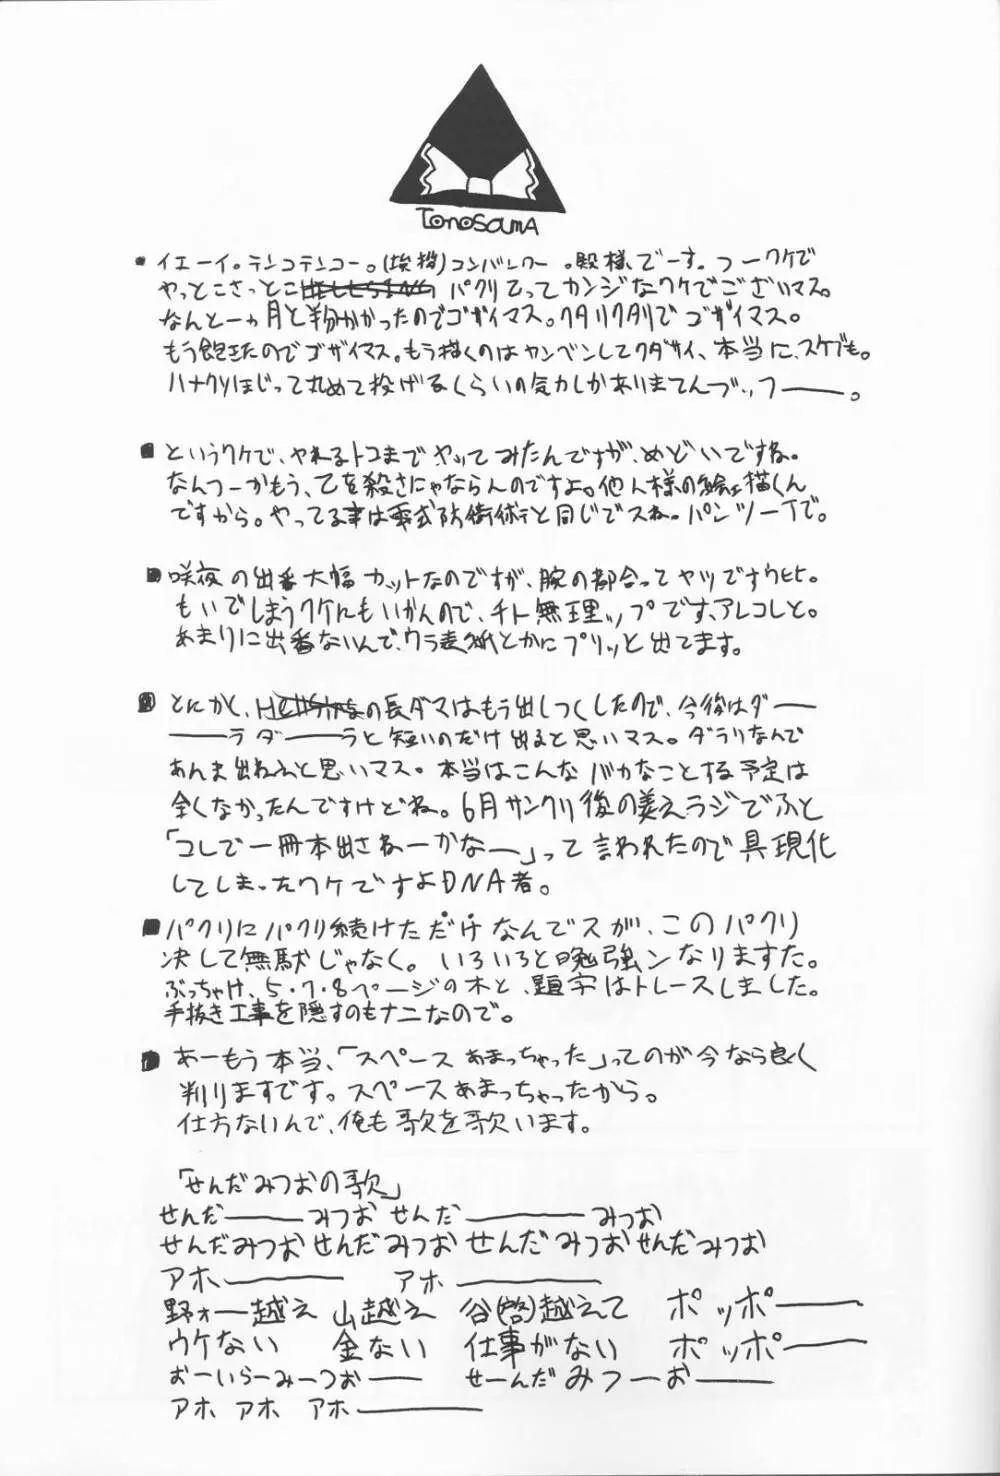 TonosamA
・イエーイ。テンコテンコー。(挨拶)コンバンワー。殿様でーす。つーワケで
やっとこさっとこHELLSINGパクリてってカンジなワケでございマス。
なんと一ヵ月と半分かかったのでゴザイマス。クタリクタリでゴザイマス。
もう飽きたのでゴザイマス。もう描くのはカンベンしてクダサイ、本当に、スケブも。
ハナクソほじって丸めて投げるくらいの気力しかありませんブッフ――。
■というワケで、やれるトコまでやってみたんですが、めどいですね。
なんつーかもう、己を殺さにゃならんのですよ。他人様の絵描くん
ですから。やってる事は零式防衛術と同じでスね。パンツ一丁で。
■咲夜の出番大幅カットなのですが、腕の都合ってヤツですウヒヒ。
もいでしまうワケにもいかんので、チト無理ップです、アレコレと。
あまりに出番ないんで、ウラ表紙とかにプリッと出てます。
■とにかく、の長ダマはもう出しつくしたので、今後はダ――
――ラダ――ラと短いのだけ出ると思いマス。ダラリなんで
あんま出ねぇと思いマス。本当はこんなバカなことする予定は
全くなかったんですけどね。6月サンクリ後の美えラジでふと
「コレで一冊本出さねーかなー」って言われたので具現化
してしまったワケですよDNA者。
■パクリにパクリ続けただけなんでスが、このパクリ
決して無駄じゃなく。いろいろと勉強ンなりますた。
ぶっちゃけ、5・7・8ページの木と、題字はトレースしました。
手抜き工事を隠すのもナニなので。
■あーもう本当、「スペースあまっちゃった」ってのが今なら良く
判りますです。スペースあまっちゃったから。
仕方ないんで、俺も歌を歌います。
「せんだみつおの歌」
せんだ――みつお せんだ――みつお
せんだみつお せんだみつお せんだみつお せんだみつお
アホ―― アホ――
野ォー越え 山越え 谷(啓)越えて ポッポ――
ウケない 金ない 仕事がない ポッポ――
おーいらーみーつおー せーんだみつーおー
アホ アホ アホ――